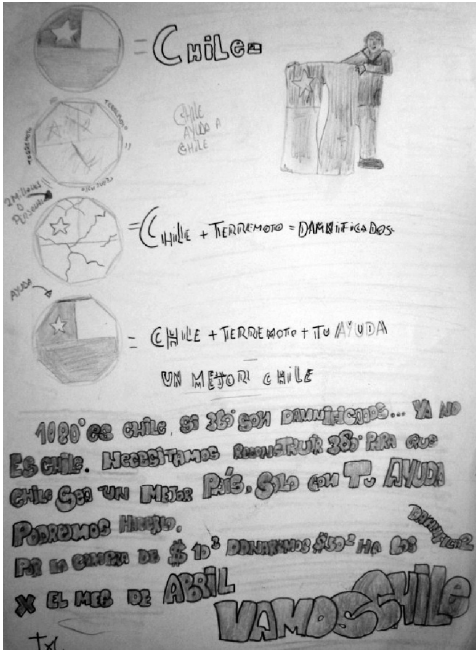 = CHILE
CHILE
AYUDA A
CHILE
TERREMOTO
2 MILLONES
= CHILE + TERREMOTO = DAMNIFICADOS
AYUDA
= CHILE + TERREMOTO + TU AYUDA
UN MEJOR CHILE
1080° ES CHILE, SI 360° SON DAMNIFICADOS... YA NO
ES CHILE. NECESITAMOS RECONSTRUIR 360° PARA QUE
CHILE SEA UN MEJOR PAÍS. SOLO CON TU AYUDA
PODREMOS HACERLO.
POR LA COMPRA DE $ 10³ DONAREMOS HA LOS
DAMNIFICADOS
X EL MES DE ABRIL
VAMOS CHILE